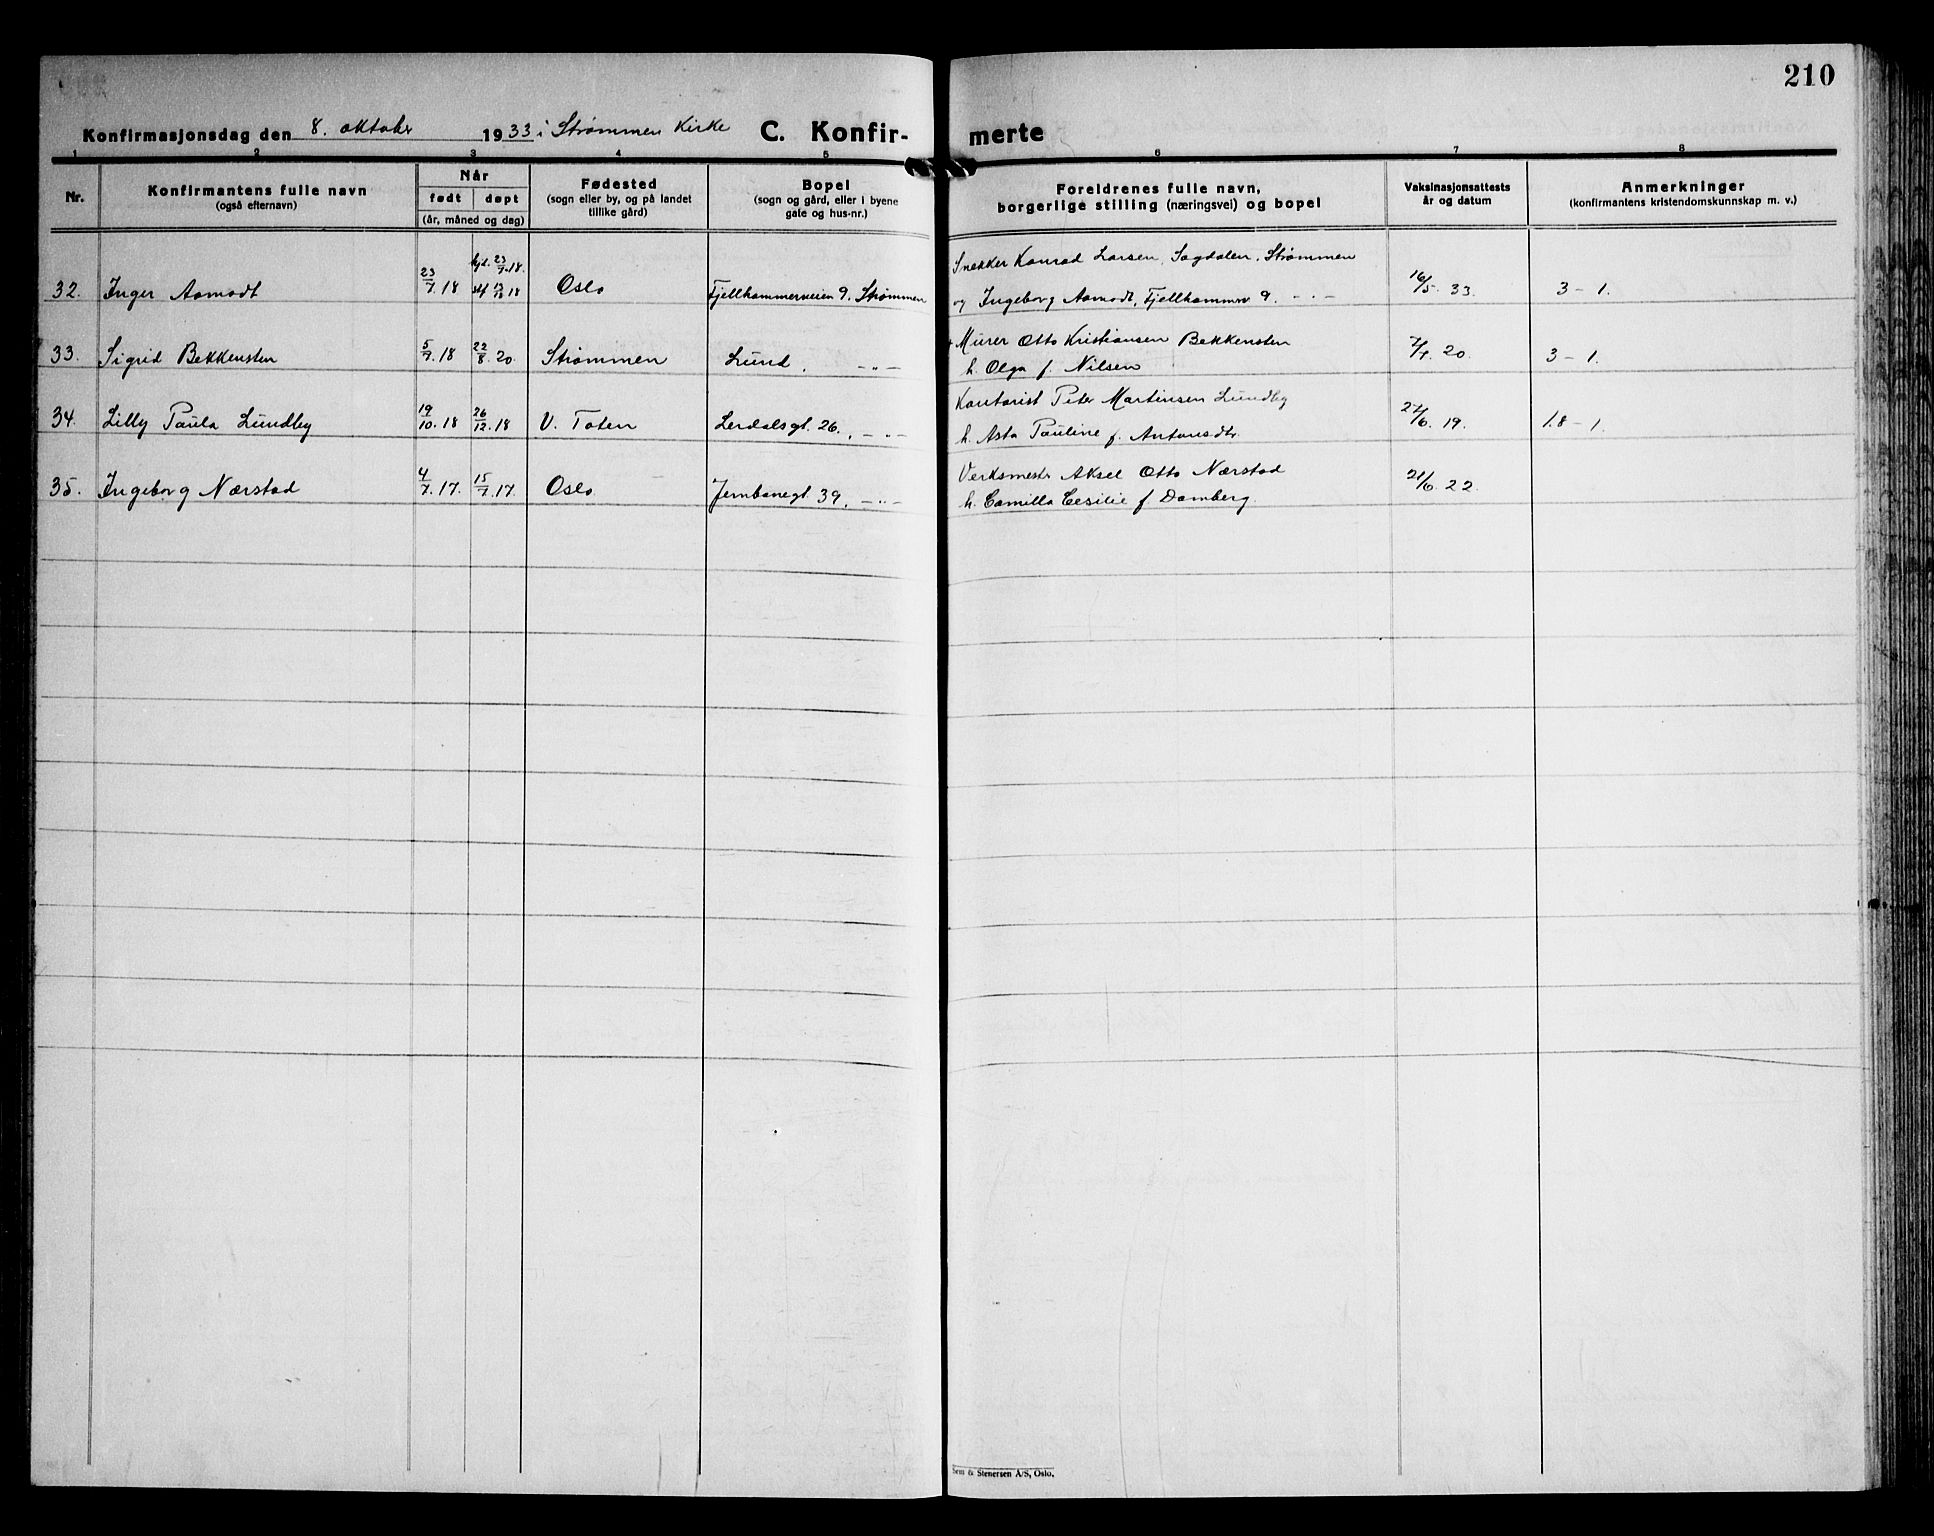 210
Konfirmasjonsdag den 8. oktober 1933 i Strømmen Kirke C. Konfir- merte
1 2 3 4 5 6 7 8
Nr.
Konfirmantens fulle navn
(også efternavn)
Når
født døpt
(år, måned og dag)
Fødested
(sogn eller by, og på landet
tillike gård)
Bopel
(sogn og gård, eller i byene
gate og hus-nr.)
Foreldrenes fulle navn,
borgerlige stilling (næringsvei) og bopel
Vaksinasjonsattests
år og datum
Anmerkninger
(konfirmantens kristendomskunnskap m. v.)
32. Inger Aamodt 23/7.18 hjd. 23/7.18. Oslo Fjellhammerveien 9. Strømmen
Snekker Konrad Larsen, Sagdalen, Strømmen
og Ingeborg Aamodt, Fjellhammerv 9. - " - 16/5. 33. 3 - 1.
33. Sigrid Bekkensten 5/9.18 22/8.20. Strømmen Lund, - " -
Murer Otto Kristiansen Bekkensten
h. Olga f. Nilsen 20. 3 - 1.
34. Lilly Paula Lundby 19/10.18 26/12.18 V. Toten Lerdalsgt. 26., - " -
Kontorist Peter Martinsen Lundby
h. Asta Pauline f. Antonsdtr. 27/6. 19. 1.8 - 1.
35. Ingeborg Nærstad 4/7.17. 15/7.17. Oslo Jernbanegt 39, - " -
Verksmester Aksel Otto Nærstad
h. Camilla Cesilie f. Damberg. 21/6. 22.
Sem & Stenersen A/S, Oslo.